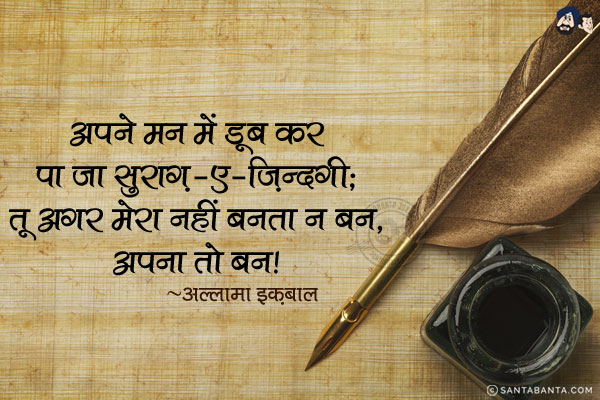 अपने मन में डूब कर
पा जा सुराग़-ए-ज़िन्दगी;
तू अगर मेरा नहीं बनता न बन,
अपना तो बन!
~अल्लामा इक़बाल
© SANTABANTA.COM